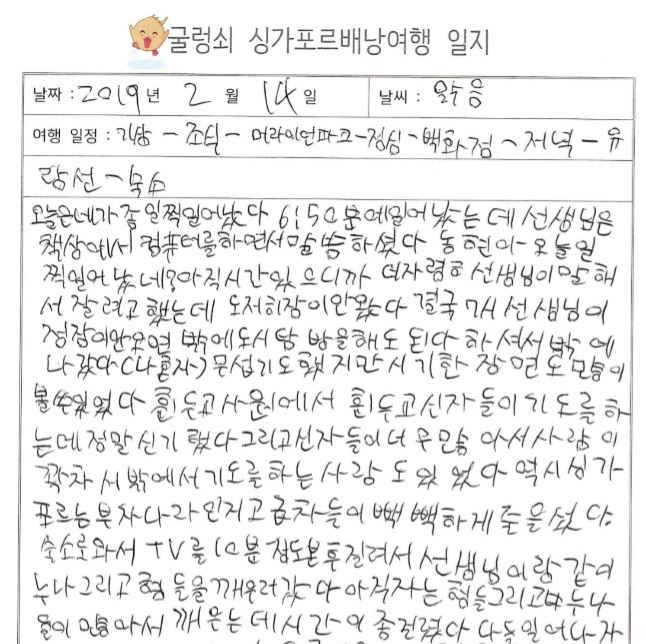 굴렁쇠 싱가포르배낭여행 일지
날짜 : 2019 년 2 월 14 일 날씨 : 음
여행 일정 : 기상 - 조식 - 머라이언파크 - 점심 - 백화점 - 저녁 - 유
람선 - 숙소
오늘은네가좀일찍일어났다 6:50분에일어났는데 선생님은
책상에서 컴퓨터를하면서말씀하셨다 동현이-오늘일
찍일어났네?아직시간있으니까 더자렴ㅎ 선생님이말해
서 잘려고 했는데 도저히잠이안왔다 결국 7시 선생님이
정잠이안오면 밖에도시탐방을해도 된다 하셔서밖에
나갔다(나혼자)무섭기도했지만시기한 장면도 많이
볼수있었다 힌두교사원에서 힌두교신자들이기도를하
는데정말신기했다그리고신자들이너무많아서사람이
꽉차서밖에서기도를하는사람도있었다 역시싱가
포르는부자나라인지고급차들이빽빽하게줄을섰다.
숙소로와서 TV를 10분정도본후 선생님이랑같이
누나그리고형들을깨우러갔다 아직자는형들그리고 누나
들이많아서 깨우는데시간이좀걸렸다 다들일어나자